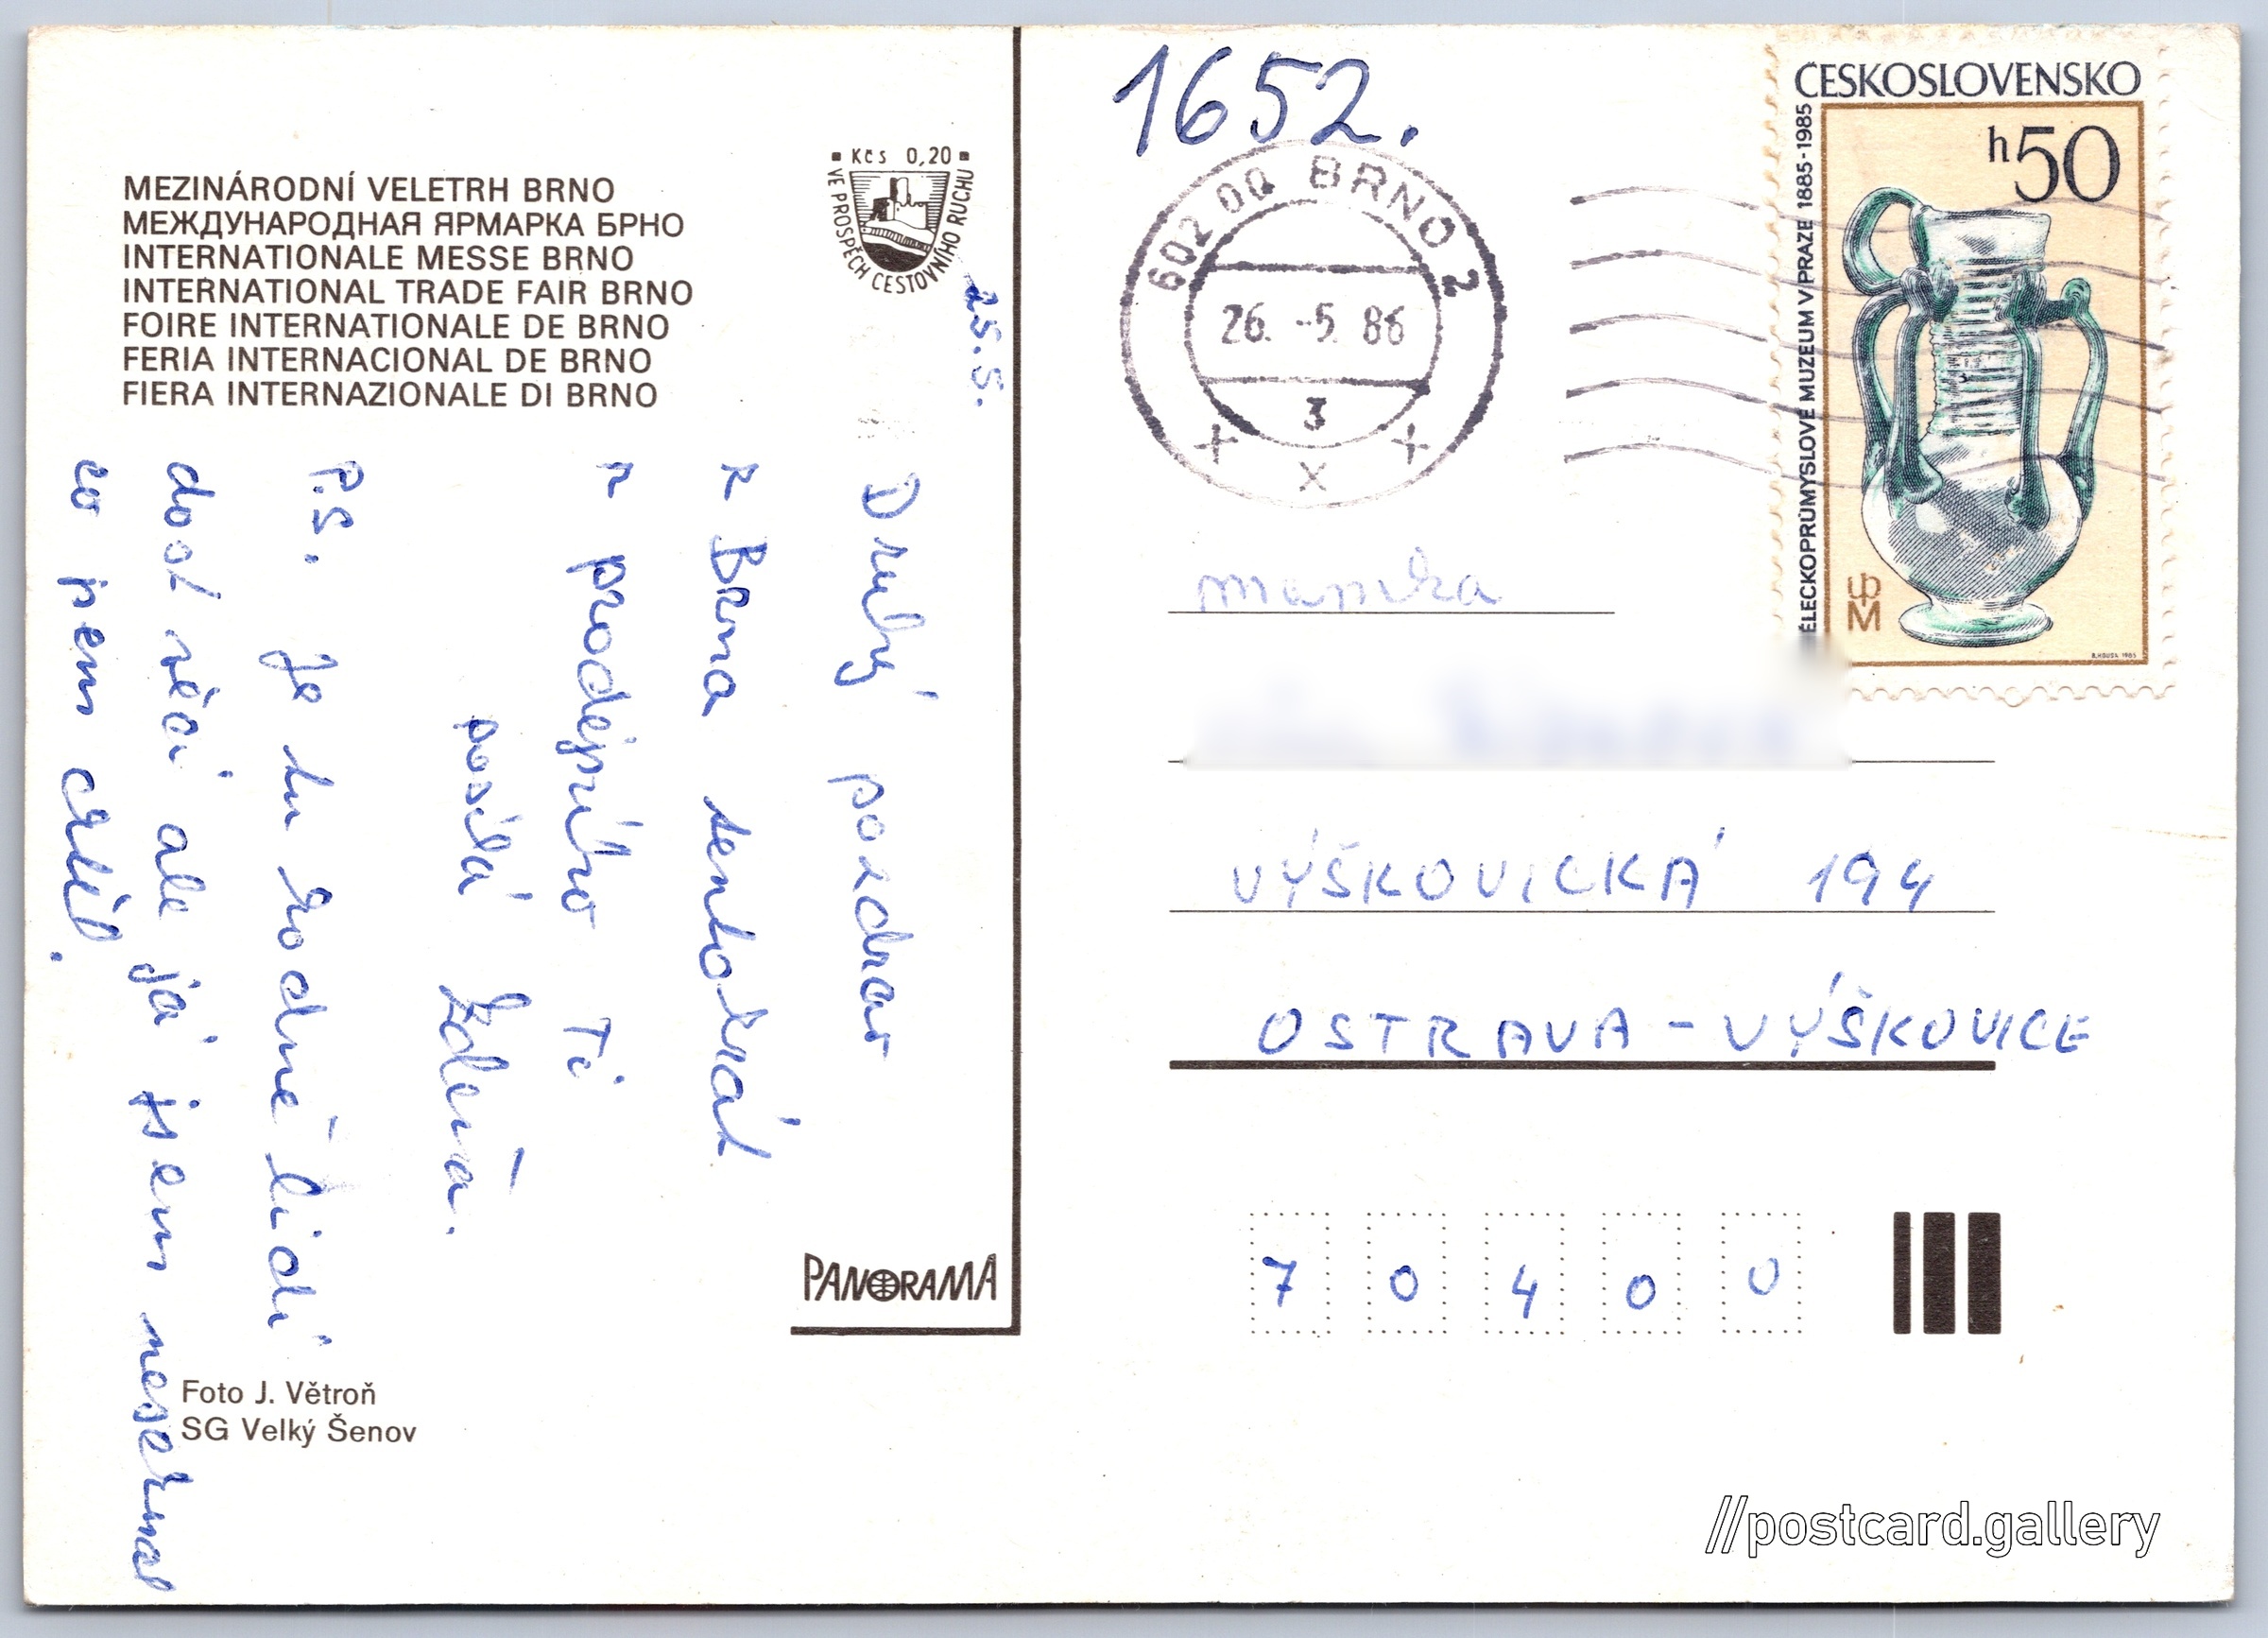 MEZINÁRODNÍ VELETRH BRNO
МЕЖДУНАРОДНАЯ ЯРМАРКА БРНО
INTERNATIONALE MESSE BRNO
INTERNATIONAL TRADE FAIR BRNO
FOIRE INTERNATIONALE DE BRNO
FERIA INTERNACIONAL DE BRNO
FIERA INTERNAZIONALE DI BRNO
Kčs 0,20
VE PROSPĚCH CESTOVNÍHO RUCHU
25.5.
Druhý pozdrav
z Brna tentokrát
z prodejního Ti
posílá Zdena.
P.S. Je tu hodně lidí
dost věcí ale já jsem nesehnal
co jsem chtěl.
PANORAMA
Foto J. Větroň
SG Velký Šenov
1652.
602 00 BRNO 2
26. -5. 86
3
ČESKOSLOVENSKO
h50
ĚLECKOPRŮMYSLOVÉ MUZEUM V PRAZE 1885-1985
UPM
VÝŠKOVICKÁ 194
OSTRAVA-VÝŠKOVICE
70400
//postcard.gallery